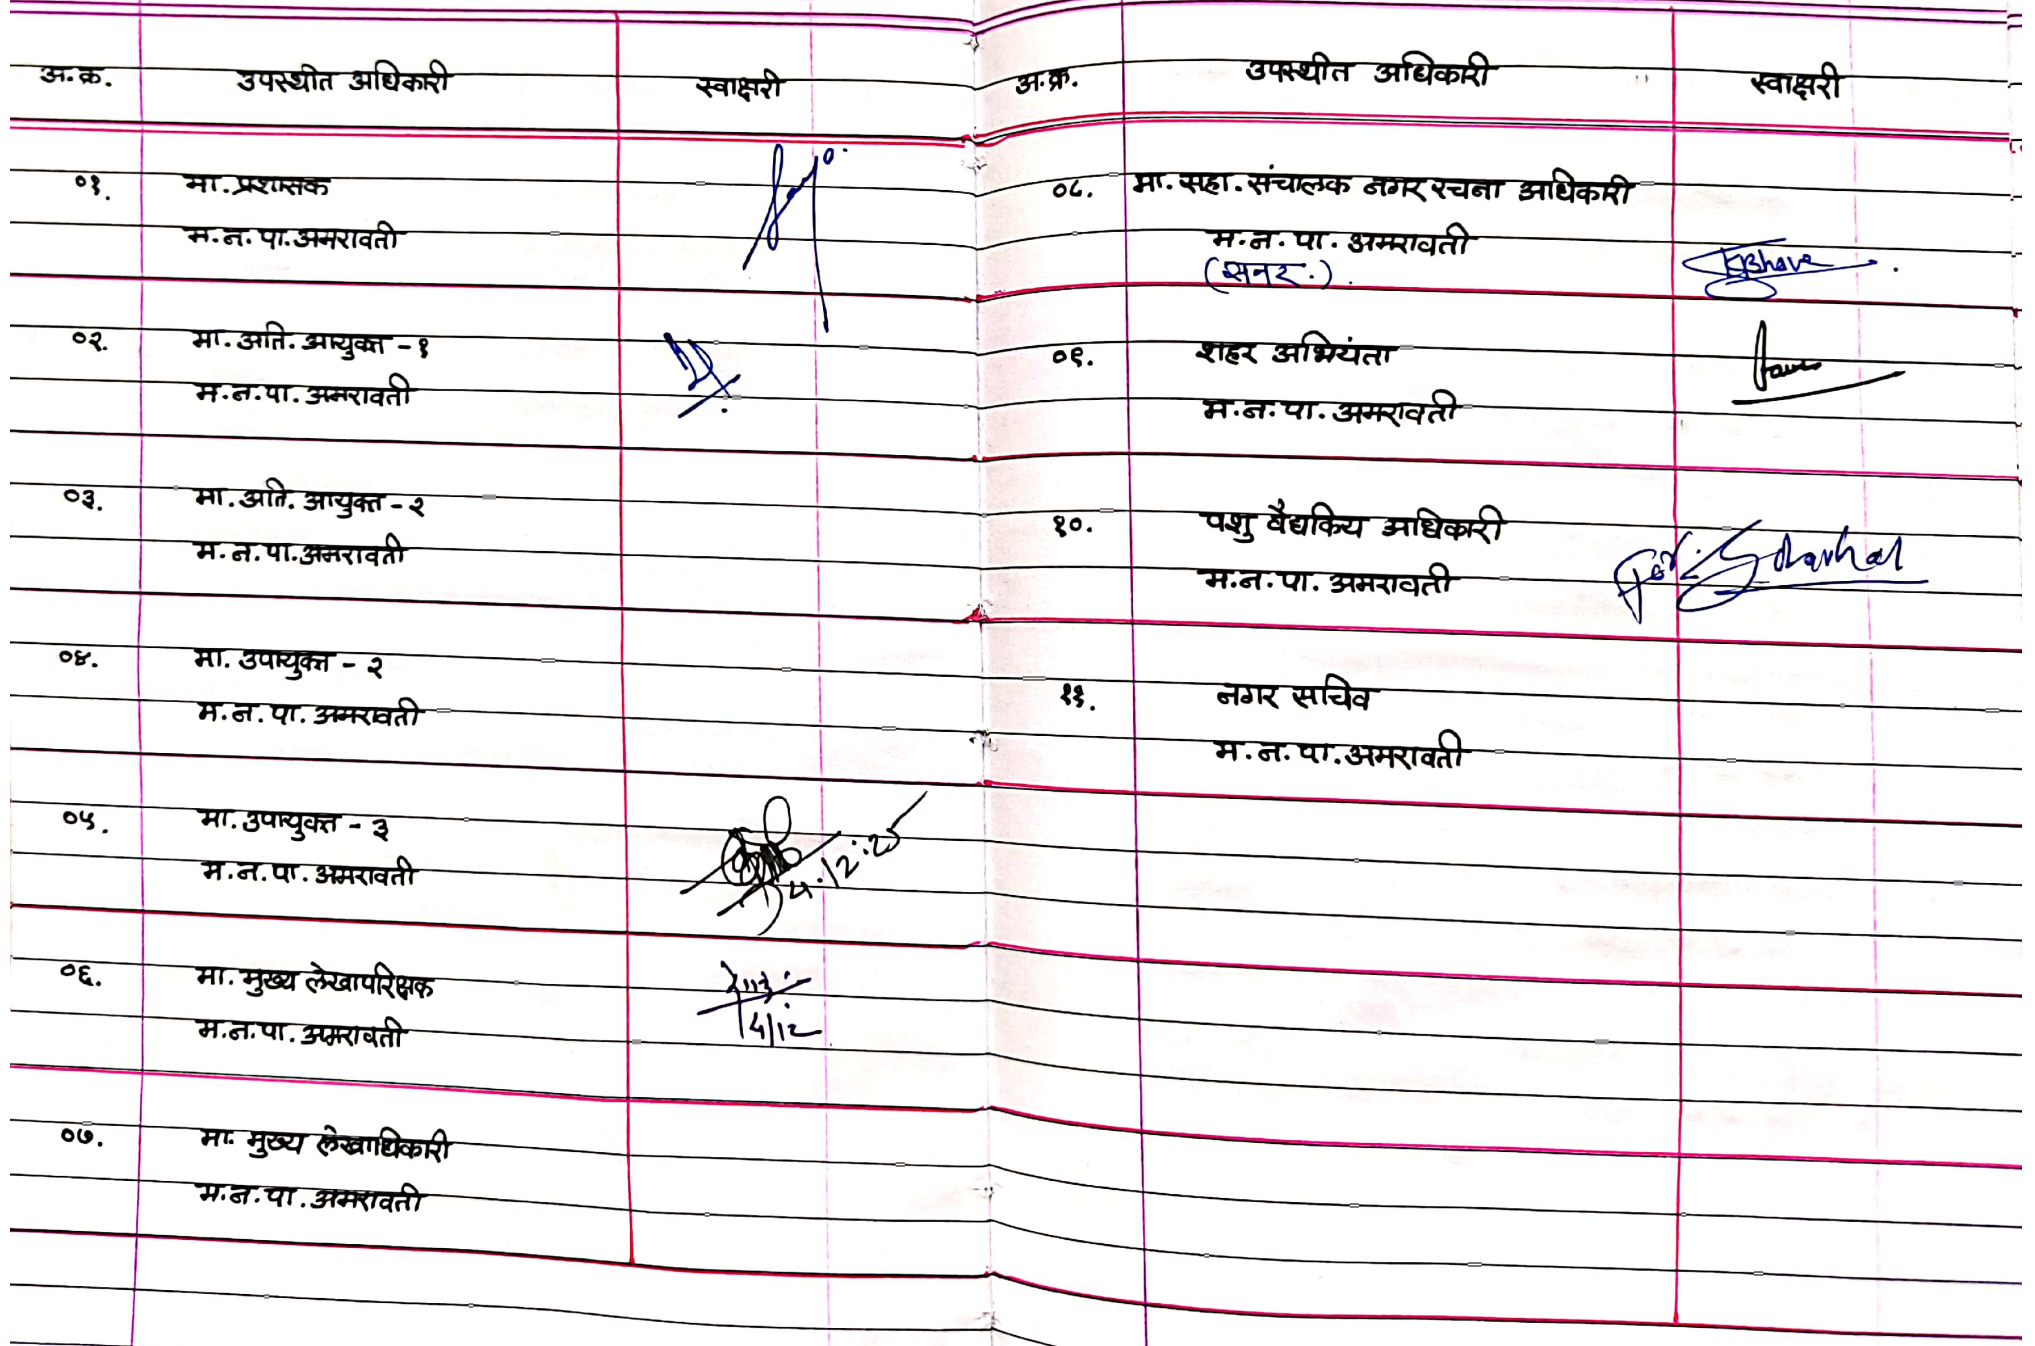 अ.क्र. उपस्थीत अधिकारी स्वाक्षरी
०१. मा. प्रशासक
म.न.पा. अमरावती
०२. मा. अति. आयुक्त - १
म.न.पा. अमरावती
०३. मा. अति. आयुक्त - २
म.न.पा. अमरावती
०४. मा. उपायुक्त - २
म.न.पा. अमरावती
०५. मा. उपायुक्त - ३
म.न.पा. अमरावती 4.12.25
०६. मा. मुख्य लेखापरिक्षक
म.न.पा. अमरावती 4/12
०७. मा. मुख्य लेखाधिकारी
म.न.पा. अमरावती
अ.क्र. उपस्थीत अधिकारी स्वाक्षरी
०८. मा. सहा. संचालक नगर रचना अधिकारी
म.न.पा. अमरावती
(सनर.)
०९. शहर अभियंता
म.न.पा. अमरावती
१०. पशु वैद्यकिय अधिकारी
म.न.पा. अमरावती
११. नगर सचिव
म.न.पा. अमरावती